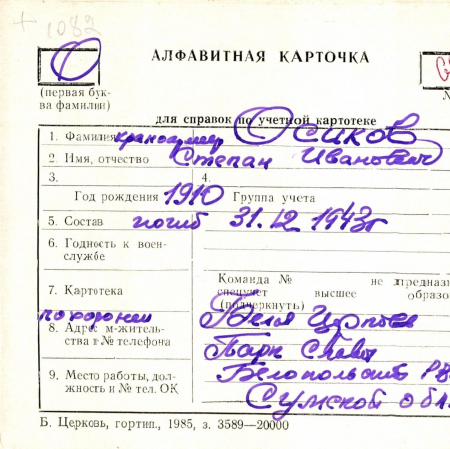 + 1082
О
АЛФАВИТНАЯ КАРТОЧКА
(первая бук-
ва фамилии)
для справок по учетной картотеке
1. Фамилия красноармеец Осиков
2. Имя, отчество Степан Иванович
3.
4.
Год рождения 1910 Группа учета
5. Состав погиб 31.12 1943г
6. Годность к воен-
службе
Команда № не предназна
7. Картотека спецучет высшее образо
(подчеркнуть)
похоронен
8. Адрес м-житель-
ства и № телефона
Парк Славы
9. Место работы, дол-
жность и № тел. ОК
Белопольского
Сумской обл.
Б. Церковь, гортип., 1985, з. 3589—20000